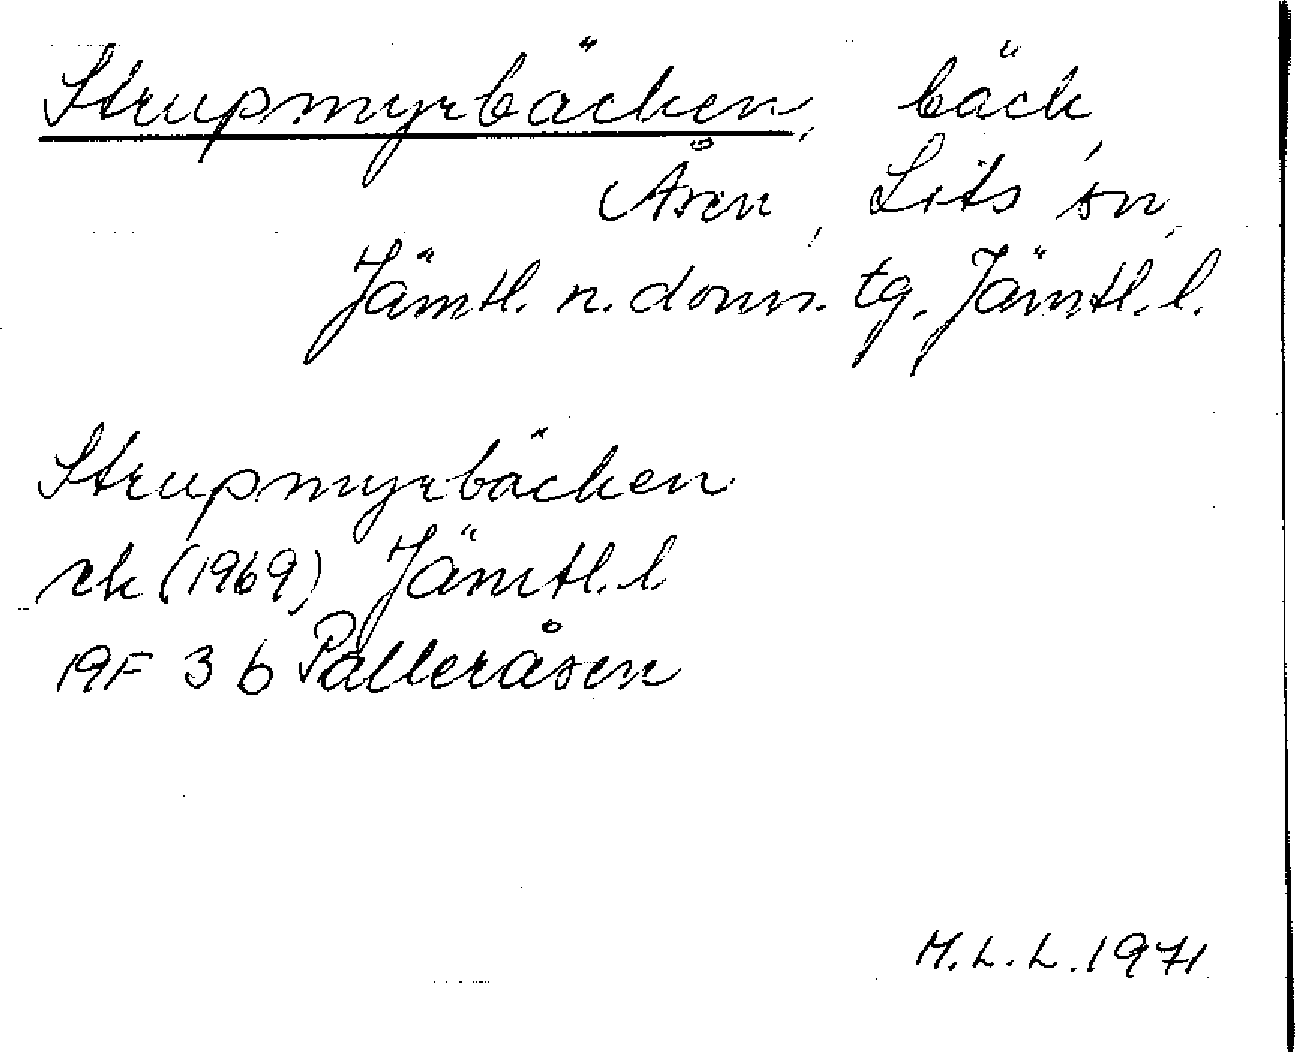 Strupmyrbäcken, bäck,
Åsen, Lits sn,
Jämtl. n. doms. tg. Jämtl. l.
Strupmyrbäcken
rk (1969) Jämtl. l
19F 3 b Palleråsen
M.L.L. 1971